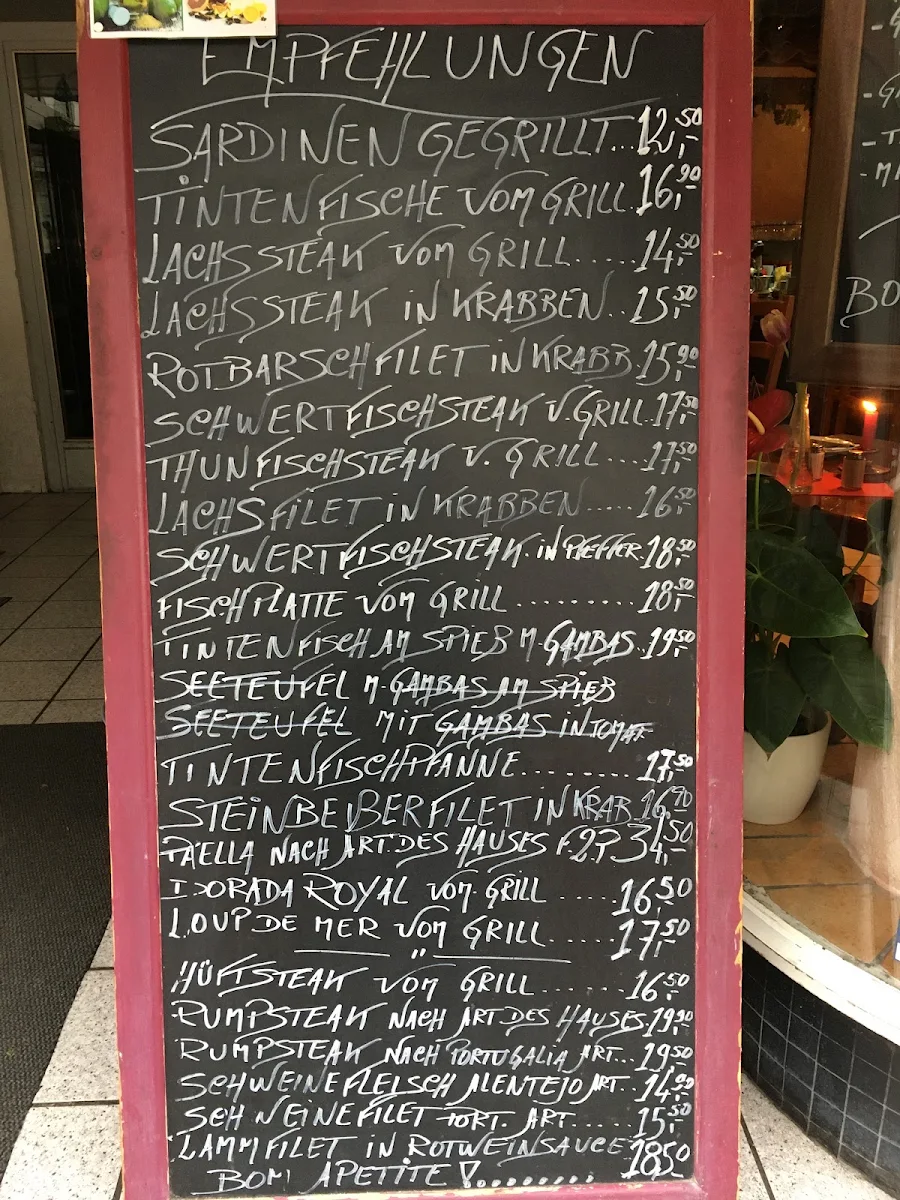 EMPFEHLUNGEN
SARDINEN GEGRILLT...12,50
TINTENFISCHE VOM GRILL.16,90
LACHSSTEAK VOM GRILL......14,50
LACHSSTEAK IN KRABBEN..15,50
ROTBARSCHFILET IN KRABB.15,90
SCHWERTFISCHSTEAK V.GRILL.17,50
THUNFISCHSTEAK V. GRILL....17,50
LACHSFILET IN KRABBEN.....16,50
SCHWERTFISCHSTEAK.IN PFEFFER.18,50
FISCHPLATTE VOM GRILL..........18,50
TINTENFISCH AM SPIEß M GAMBAS.19,50
SEETEUFEL M.GAMBAS AM SPIEß
SEETEUFEL MIT GAMBAS IN TOMAT.
TINTENFISCHPFANNE.........17,50
STEINBEIßERFILET IN KRAB.16,90
PAELLA NACH ART.DES HAUSES F.2.P 34,50
DORADA ROYAL VOM GRILL.....16,50
LOUP DE MER VOM GRILL......17,50
HÜFTSTEAK VOM GRILL......16,50
RUMPSTEAK NACH ART DES HAUSES.19,90
RUMPSTEAK NACH PORTUGALIA ART...19,50
SCHWEINEFLEISCH ALENTEJO ART..14,90
SCHWEINEFILET PORT. ART.....15,50
LAMMFILET IN ROTWEINSAUCE 18,50
BOM APETITE!..........
BO